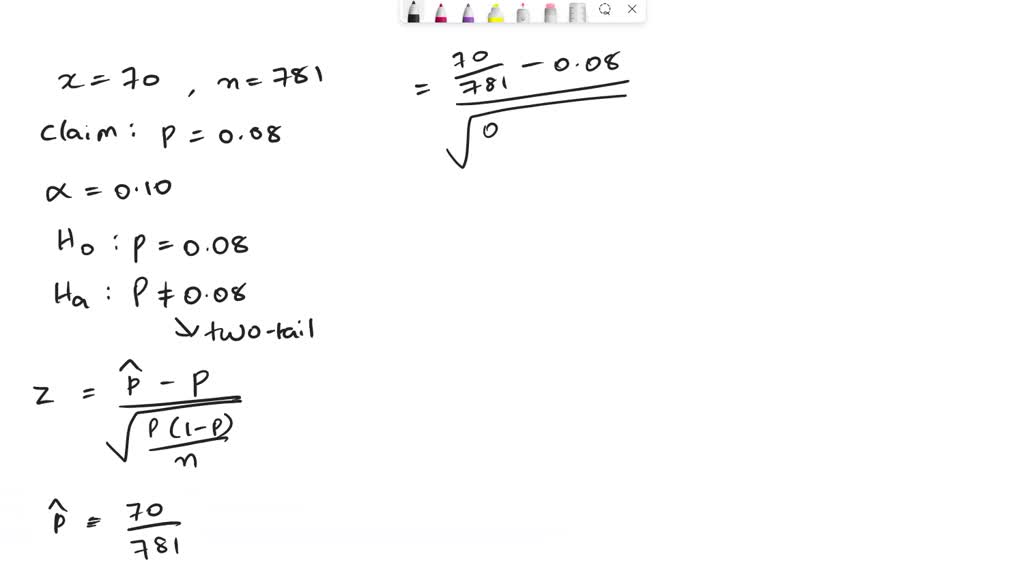 x = 70 , n = 781
Claim : p = 0.08
α = 0.10
H₀ : p = 0.08
Ha : p ≠ 0.08
↘ two-tail
z = (p̂ - p) / √(p(1-p)/n)
p̂ = 70/781
= (70/781 - 0.08) / √(0